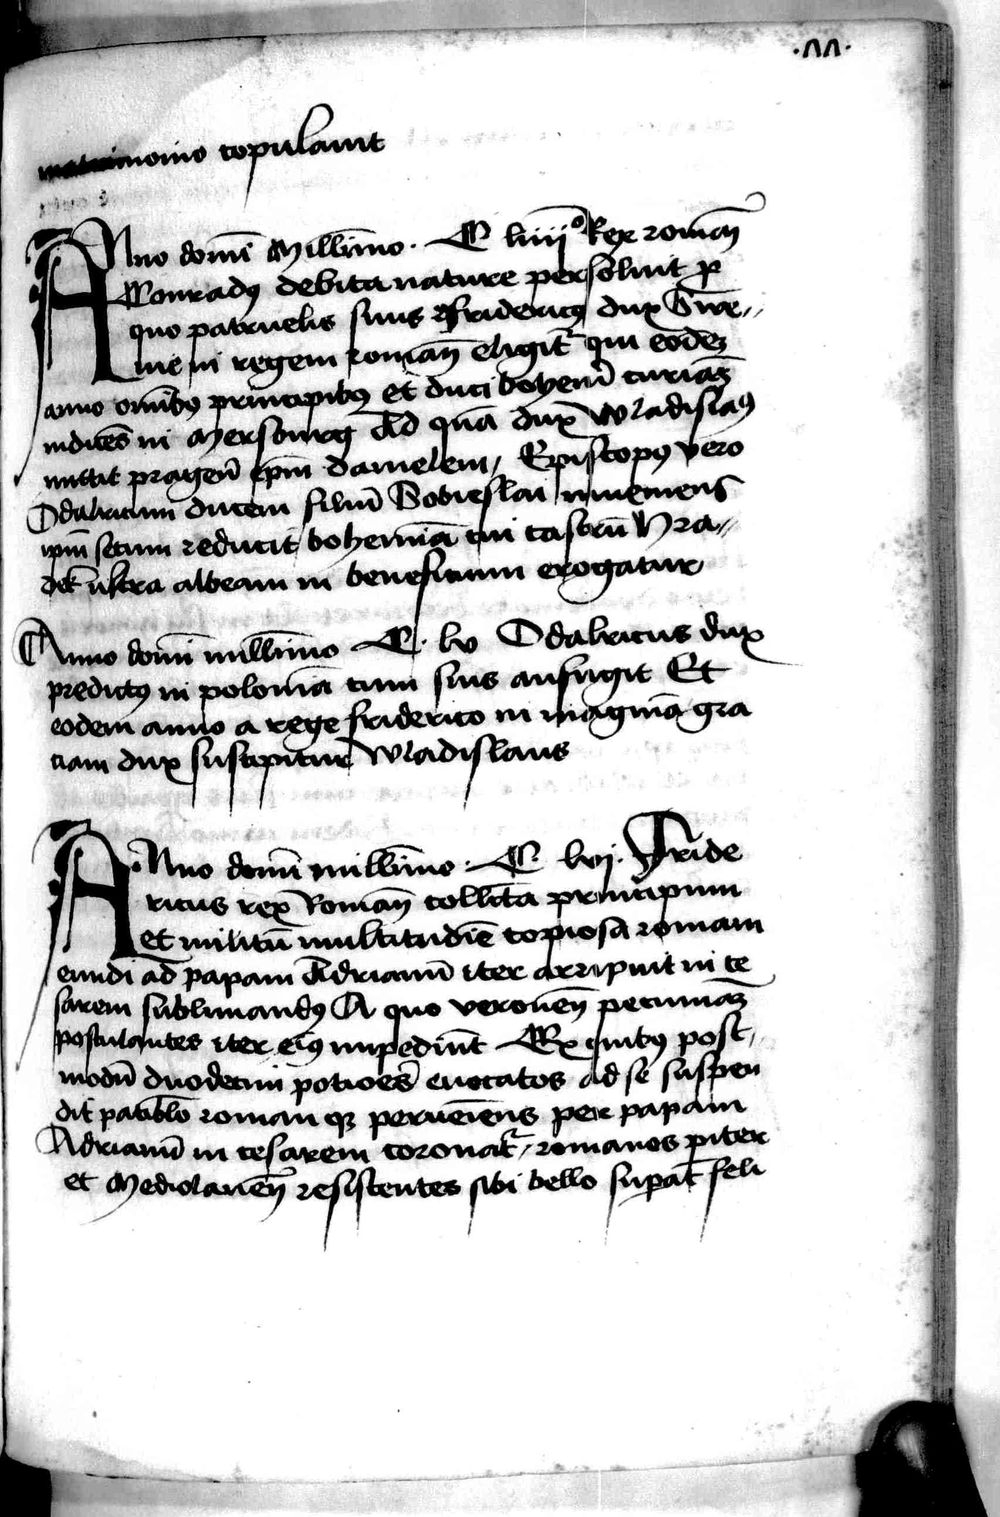 ·ΛΛ·
matrimonio copulauit
Anno domī Millīmo · C liiij° Rex romaņ
Conradꝯ debita nature persoluit p
quo patruelis suus ffridericꝯ dux Swe//
uie in regem romaņ eligitᷣ qui eodeꝫ
anno om̄ibꝯ principibꝯ et duci bohemī curiaꝫ
indicēs in Mersburg Ad quā dux Wladislaꝯ
mittit pragen̄ ep̄m danielem / Episcopꝯ vero
Odalricum ducem filiū Sobieslai inueniens
ip̄m secum reducit bohemiā cui castrū Hra//
dek̄ vltra albeam in beneficium erogatur
Anno domī millīmo C · lv Odalricus dux
predictꝯ in poloniā cum suis aufugit Et
eodem anno a rege friderico in magnā gra
ciam dux suscipitur Wladislaus
Anno domī millīmo · C · lvj · Fride
ricus rex Romaņ collc̄ta principum
et militū multitudīe copiosa romam
eundi ad papam Adrianū iter arripuit in ce
sarem sublimandꝯ A quo veronen̄ pecuniaꝫ
postulantes iter eiꝯ impediūt Ex quibꝯ post/
modū duodecim pocioēs euocatos ad se suspen
dit patib̄lo roman qꝫ perueīens per papam
Adrianū in cesarem coronatᷣ / romanos pīter
et Mediolanen̄ resistentes sibi bello sup̄at feli